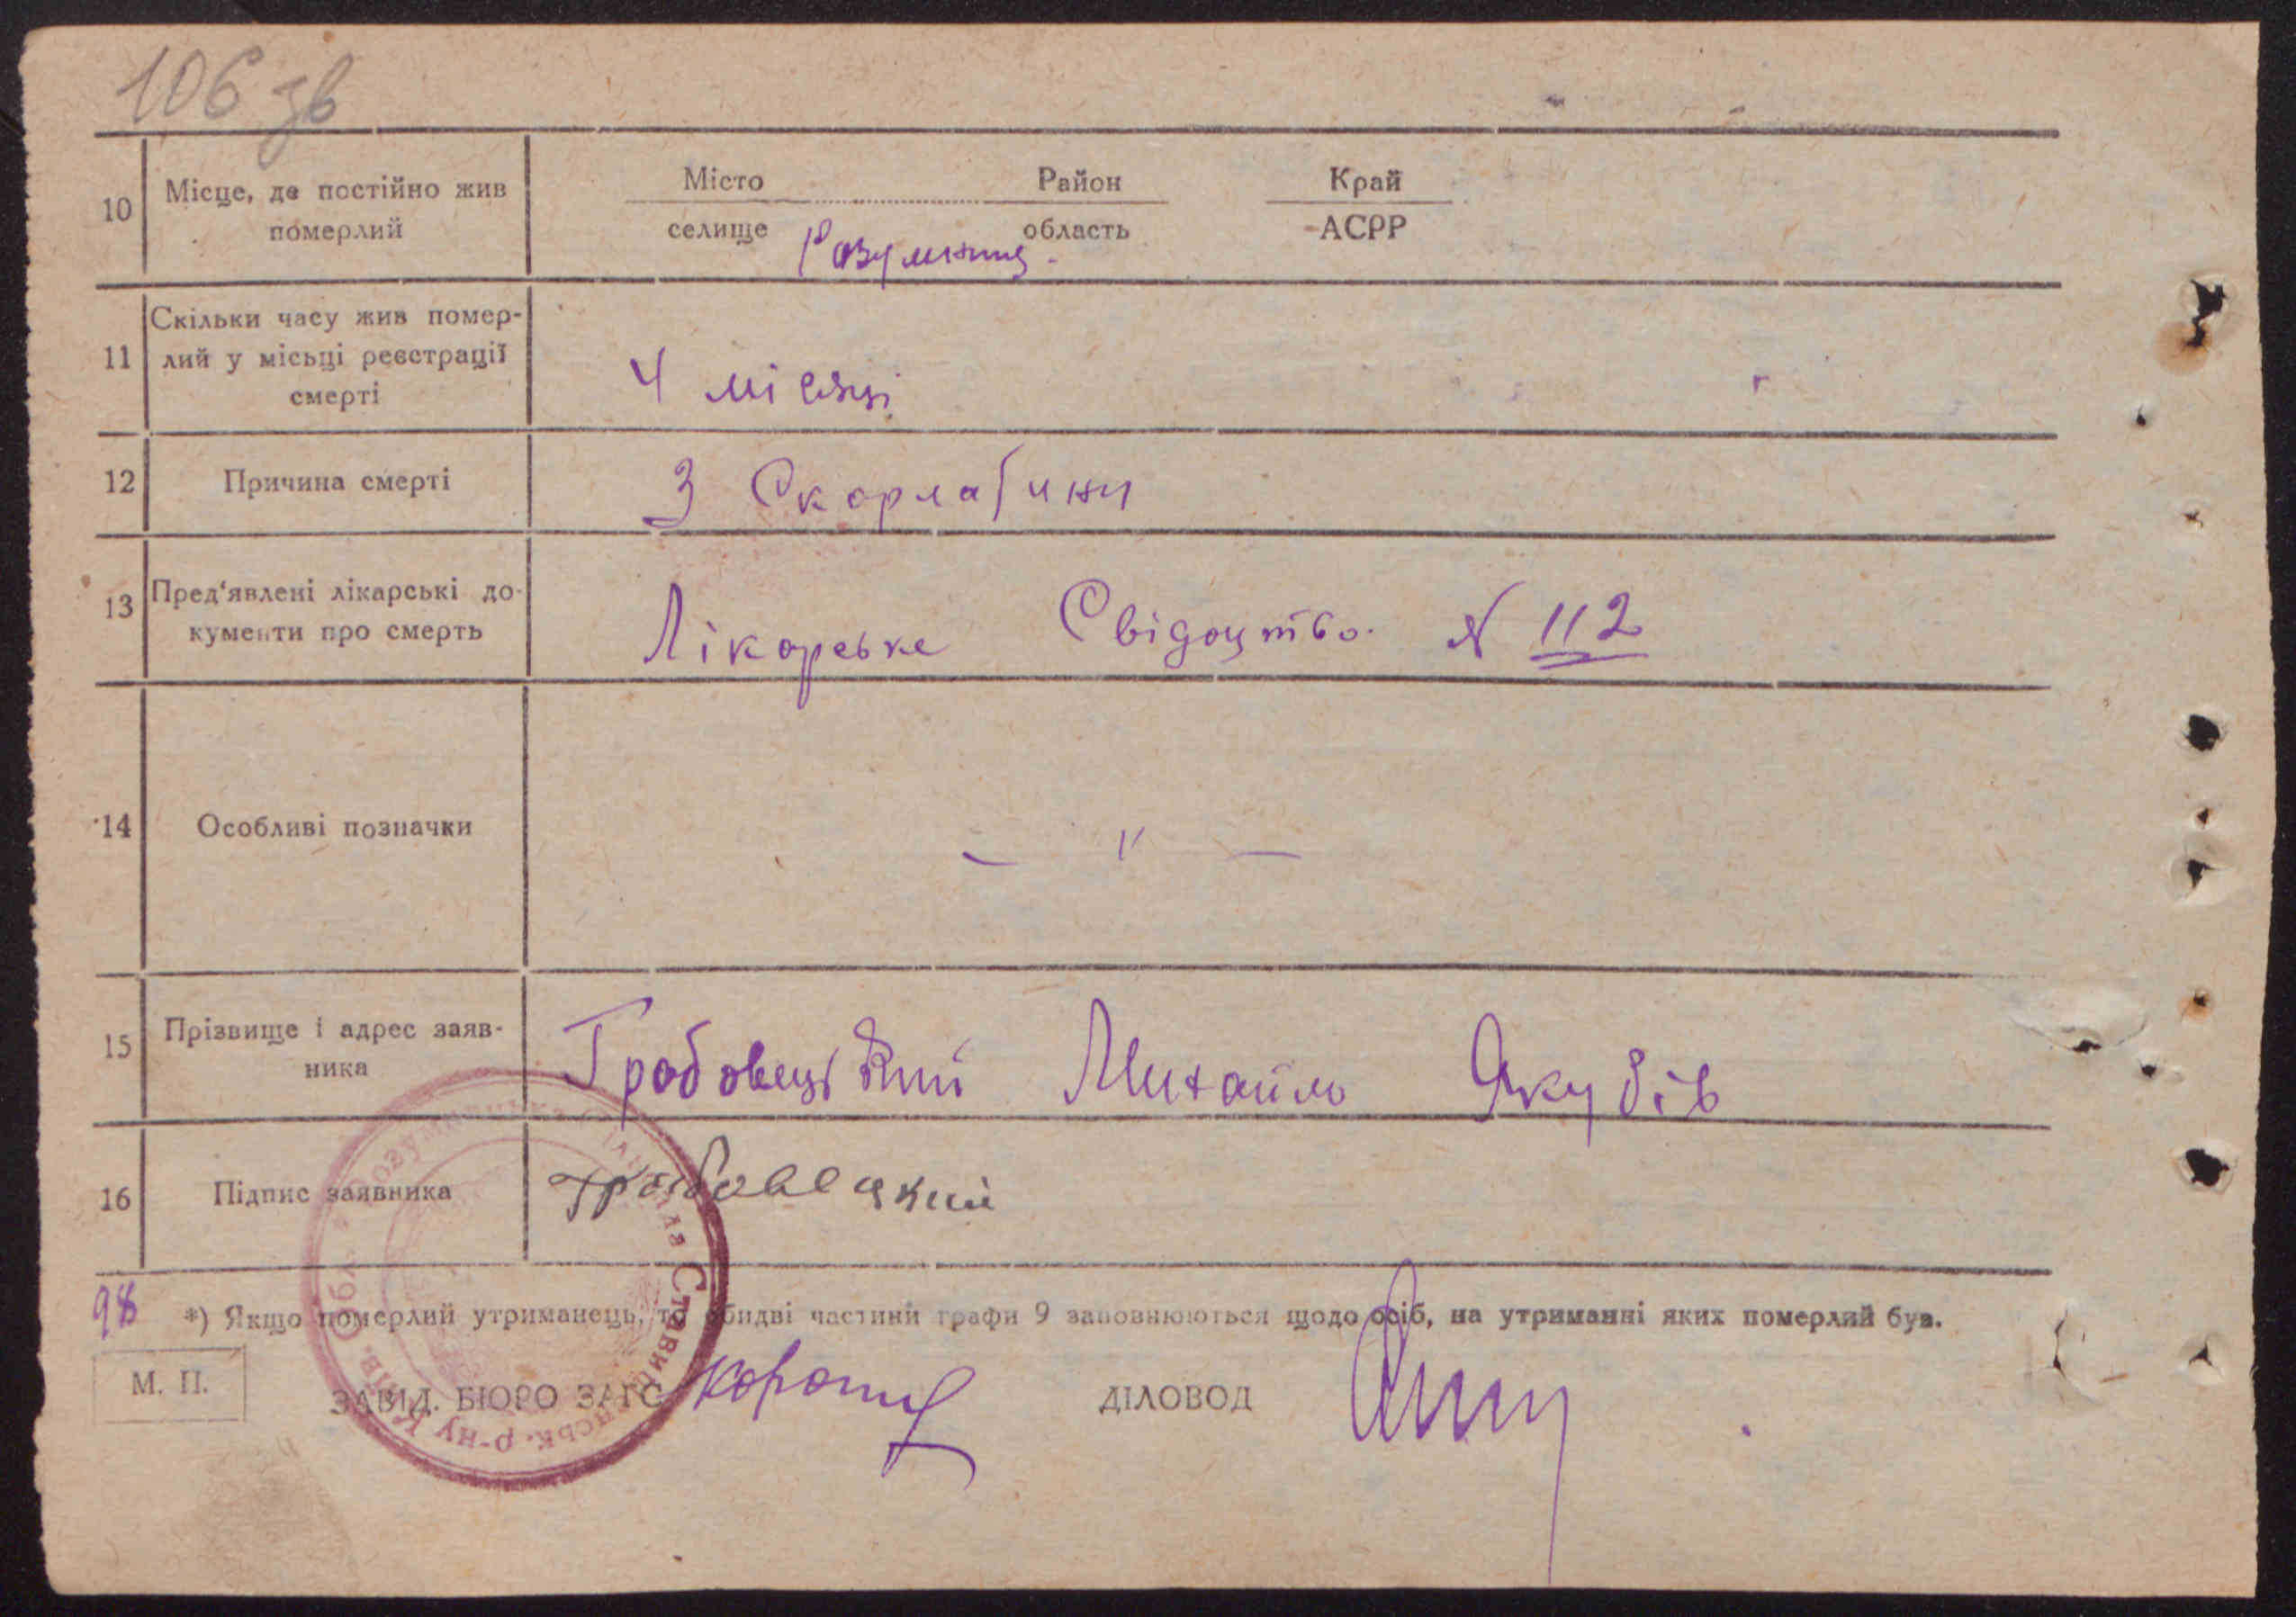 106 зв
10 Місце, де постійно жив померлий
Місто Район Край
селище область АСРР
Розумниця.
11 Скільки часу жив помер-
лий у місьці реєстрації
смерті
4 місяці
12 Причина смерті
З Скорлатини
13 Пред'явлені лікарські до-
кументи про смерть
Лікарське Свідоцтво. № 112
14 Особливі позначки
— " —
15 Прізвище і адрес заяв-
ника
Грабовецький Михайло Якубів
16 Підпис заявника
Грабовецкий
98
*) Якщо померлий утриманець, то обидві частини графи 9 заповнюються щодо осіб, на утриманні яких померлий був.
М. П.
ЗАВІД. БЮРО ЗАГС
ДІЛОВОД
Ставищенськ. р-ну Київ. Обл.